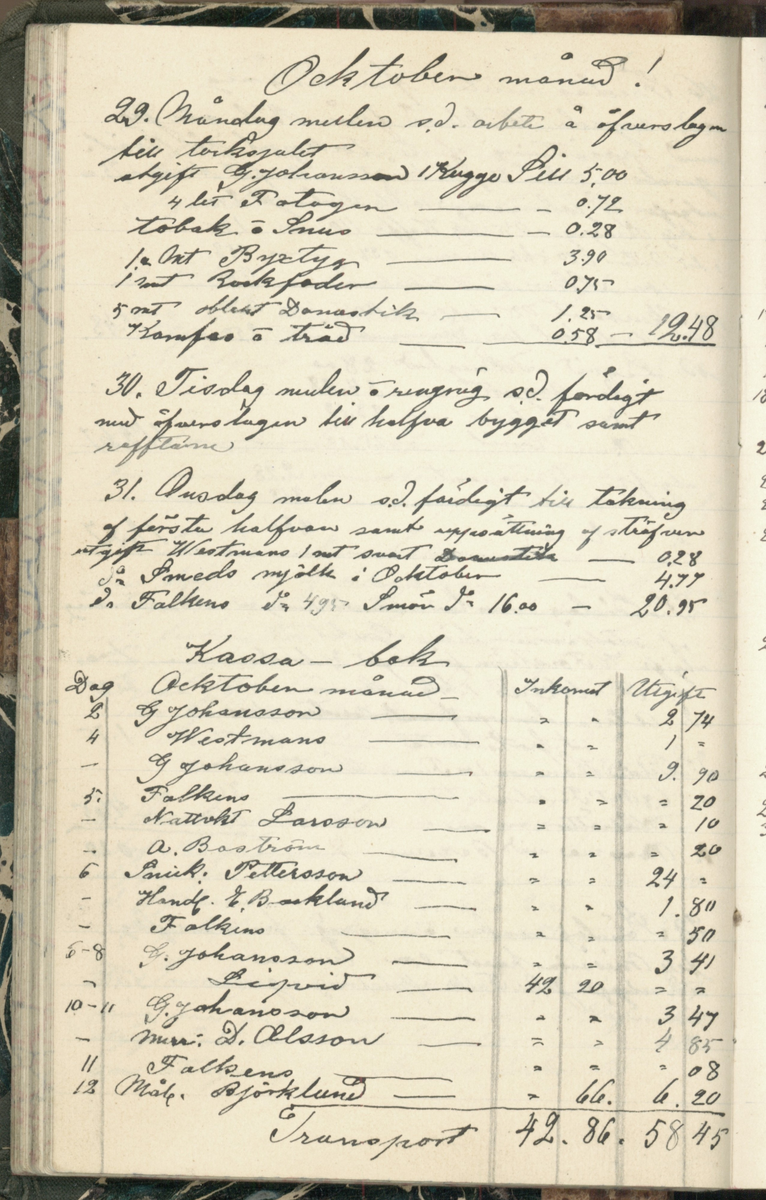 Ocktober månad!
29. Måndag mulen s.d. arbete å öfverslagen
till torksjulet
utgift G. Johansson 1 Kagge Sill 5,00
4 lit Fotogen — 0.72
tobak o Snus — 0.28
Byxtyg — 3.90
1 mt Rockfoder — 0,75
5 mt oblekt Domastik — 1.25
o tråd — 0.58 — 12.48
30. Tisdag mulen o regnig s.d. färdigt
med öfverslagen till halfva bygget samt
31. Onsdag mulen s.d. färdigt till täkning
af första halfvan samt uppsättning af sträfvor
utgift Westmans 1 mt svart Domastik — 0,28
do Smeds mjölk i Ocktober — 4.77
do Falkens do 4,95 Smör do 16.00 — 20.95
Kassa-bok
Dag Ocktober månad Inkomst Utgift
2 G Johansson — " " 2 74
4 Westmans — " " 1 "
– G Johansson " " 9. 90
5. Falkens — " " " 20
– Nattvkt Larsson — " " " 10
– A. Boström — " " " 20
6 Snick: Pettersson — " " 24 "
– Handl. E. Backlund — " " 1. 80
– Falkens — " " " 50
6-8 G. Johansson — " " 3 41
" Liqvid — 42 20 " "
10-11 G. Johansson — " " 3 47
– D. Olsson — " " 4 85
11 Falkens — " " " 08
12 Mål. Björklund — " 66. 6. 20
Transport 42. 86. 58 45